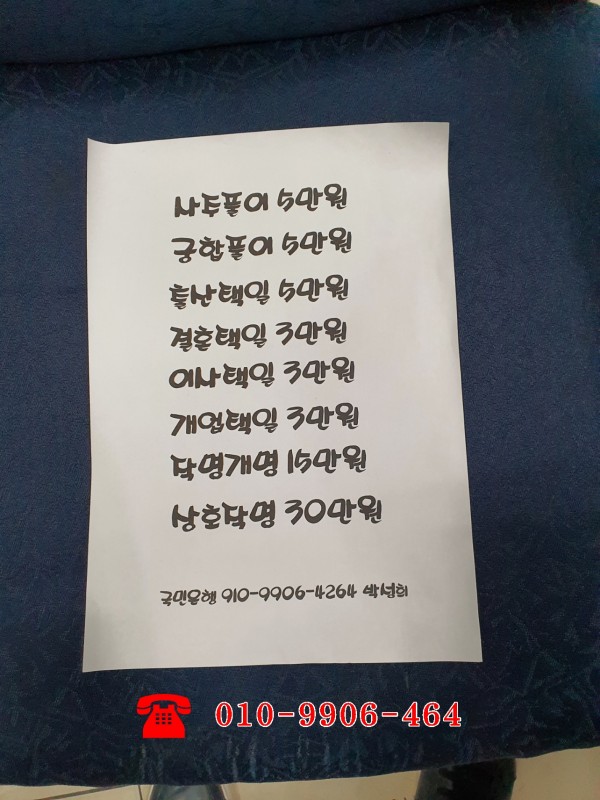 사주풀이 5만원
궁합풀이 5만원
출산택일 5만원
결혼택일 3만원
이사택일 3만원
개업택일 3만원
작명개명 15만원
상호작명 30만원
국민은행 910-9906-4264 박성희
010-9906-464